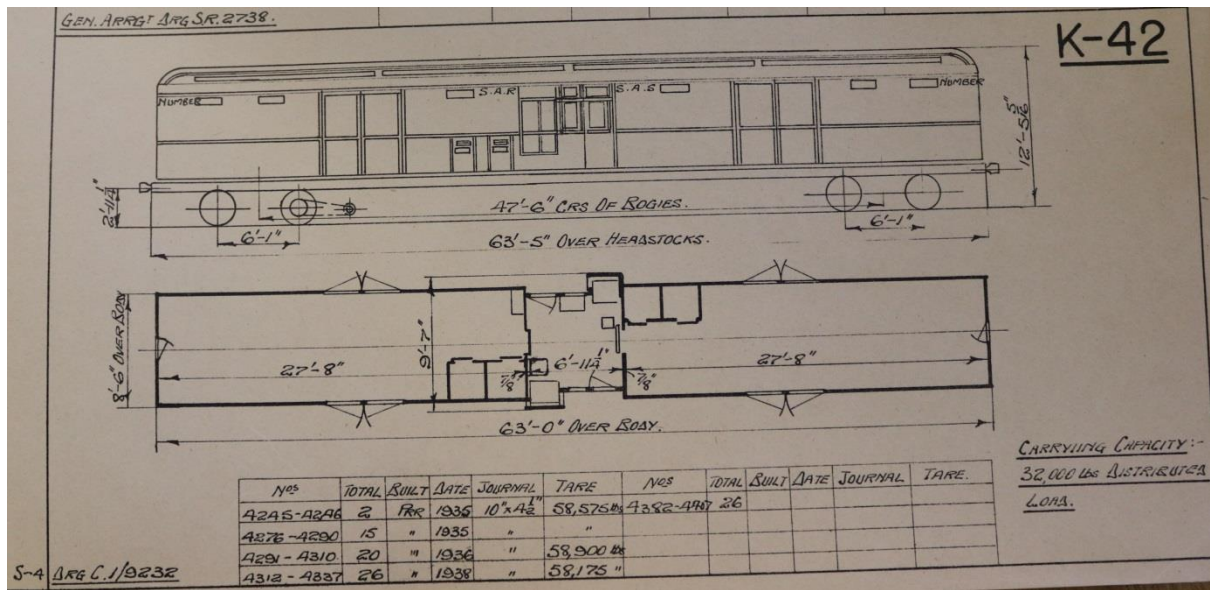 GEN. ARRGT DRG S.R. 2738.
K-42
NUMBER
S.A.R
S.A.S
NUMBER
12'-5 5/16"
2'-11 1/4"
47'-6" CRS OF BOGIES.
6'-1"
6'-1"
63'-5" OVER HEADSTOCKS.
8'-6" OVER BODY
27'-8"
9'-7"
7/8"
6'-11 1/4"
7/8"
27'-8"
63'-0" OVER BODY.
CARRYING CAPACITY:-
32,000 Lbs DISTRIBUTED
LOAD.
Nos TOTAL BUILT DATE JOURNAL TARE Nos TOTAL BUILT DATE JOURNAL TARE.
4245-4246 2 PRR 1935 10"x4 1/2" 58,575 lbs 4382-4407 26
4276-4290 15 " 1935 " "
4291-4310 20 " 1936 " 58,900 lbs
4312-4337 26 " 1938 " 58,175 "
S-4 DRG C.1/9232